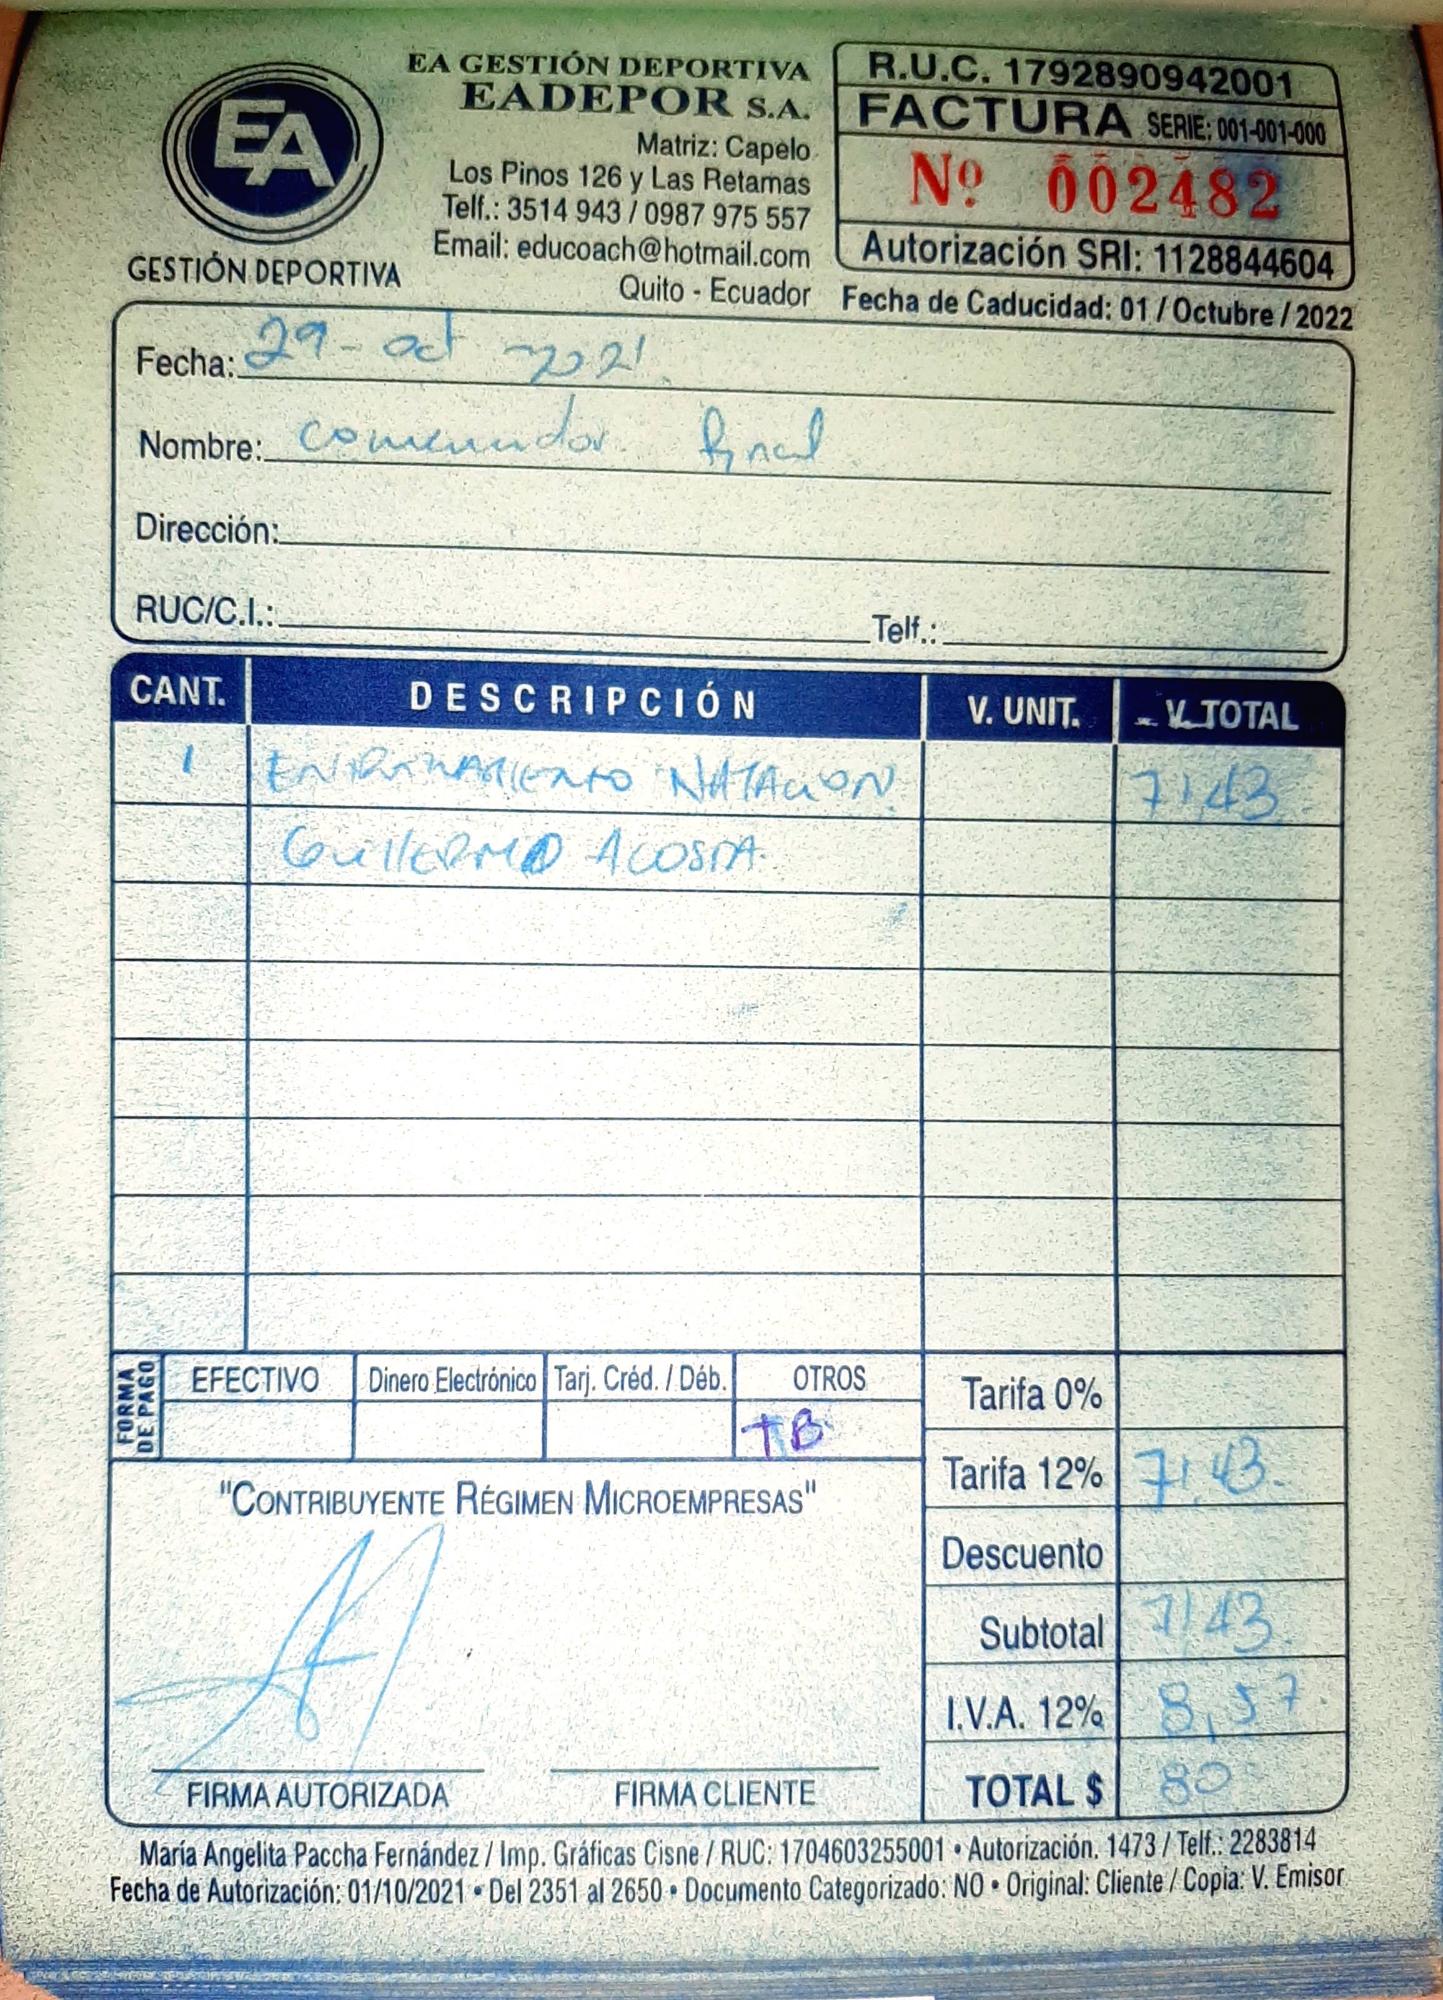 EA GESTIÓN DEPORTIVA
EADEPOR S.A.
Matriz: Capelo
Los Pinos 126 y Las Retamas
Telf.: 3514 943 / 0987 975 557
Email: educoach@hotmail.com
Quito - Ecuador
EA
GESTIÓN DEPORTIVA
R.U.C. 1792890942001
FACTURA SERIE: 001-001-000
Nº 002482
Autorización SRI: 1128844604
Fecha de Caducidad: 01 / Octubre / 2022
Fecha: 29 - oct - 2021
Nombre: consumidor final
Dirección:
RUC/C.I.: Telf.:
CANT. DESCRIPCIÓN V. UNIT. V. TOTAL
1 ENTRENAMIENTO NATACION 71,43
GUILLERMO ACOSTA
FORMA DE PAGO
EFECTIVO Dinero Electrónico Tarj. Créd. / Déb. OTROS
TB
Tarifa 0%
Tarifa 12% 71,43
Descuento
Subtotal 71,43
I.V.A. 12% 8,57
TOTAL $ 80
"CONTRIBUYENTE RÉGIMEN MICROEMPRESAS"
FIRMA AUTORIZADA FIRMA CLIENTE
María Angelita Paccha Fernández / Imp. Gráficas Cisne / RUC: 1704603255001 • Autorización. 1473 / Telf.: 2283814
Fecha de Autorización: 01/10/2021 • Del 2351 al 2650 • Documento Categorizado: NO • Original: Cliente / Copia: V. Emisor